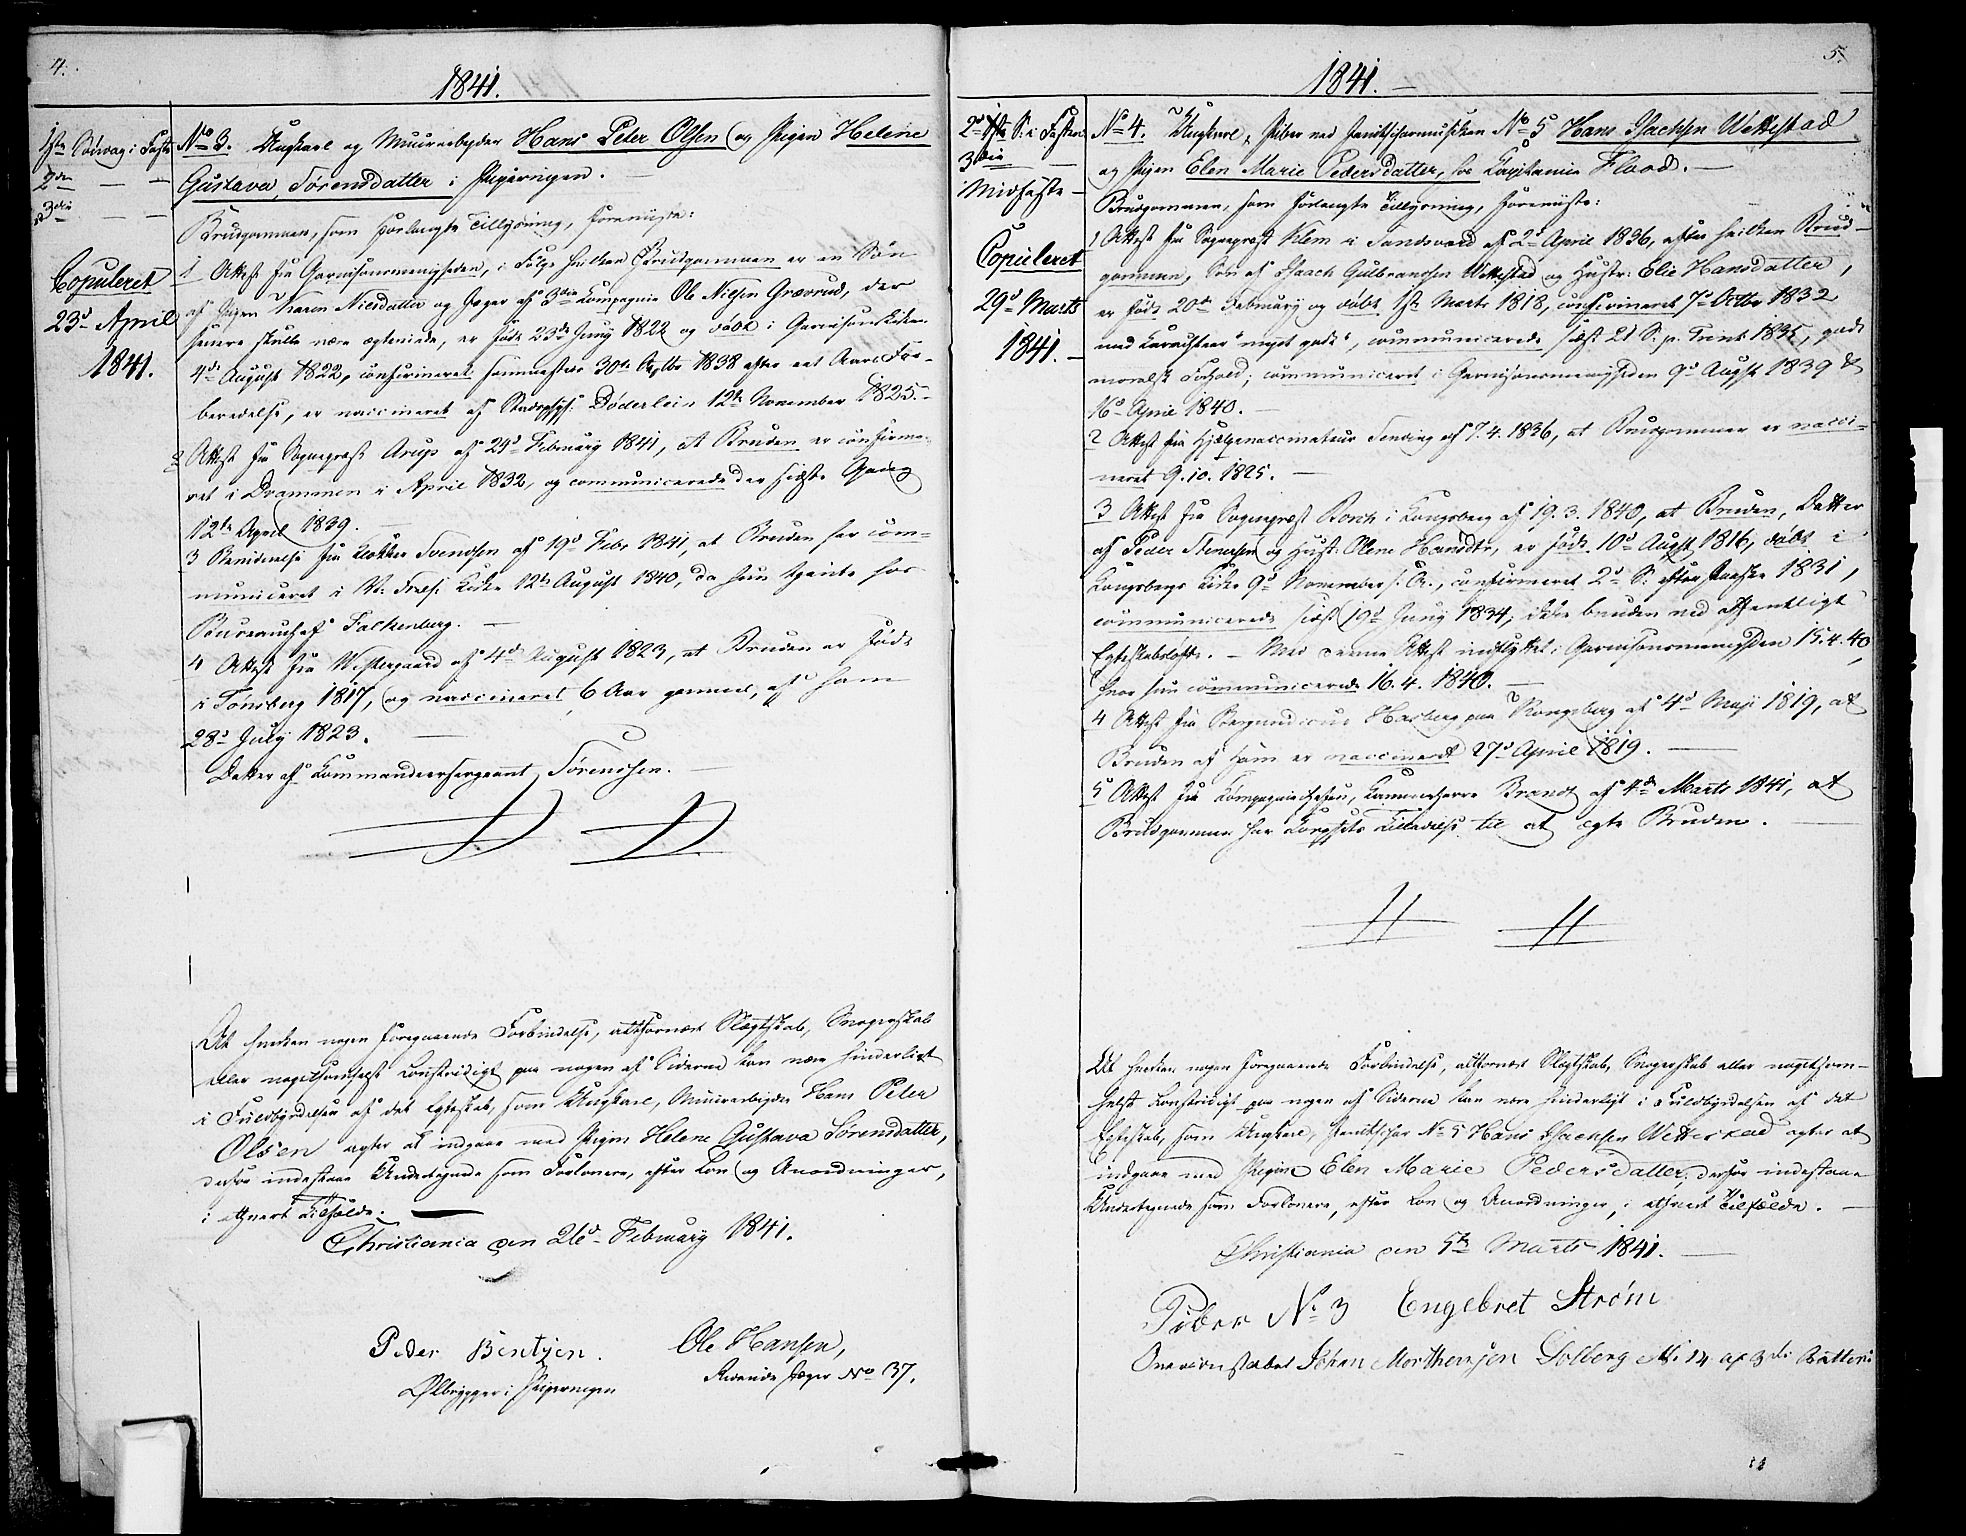 4.
1841.
1ste Søndag i Faste
2den — —
3die — —
Copuleret
23d April
1841.
No 3. Ungkarl og Muurarbeyder Hans Peter Olsen og Pigen Helene
Gustava Sørensdatter i Pipervigen. —
Brudgommen, som forlangte Tillysning, foreviiste:
1 Attest fra Garnisonsmenigheden, i Følge hvilken Brudgommen er en Søn
af Pigen Karen Nilsdatter og Jæger af 3die Kompagnie Ole Nilsen Grævrud, der
senere skulle være ægteviede, er født 23de Juny 1822 og døbt i Garnisonskirken
4de August 1822, confirmeret sammesteds 30te Septbr 1838 efter eet Aars For-
beredelse, er vaccineret af Stadsphys: Döderlein 12te November 1825. —
2 Attest fra Sognepræst Arup af 24d February 1841, at Bruden er confirme-
ret i Drammen i April 1832, og communicerede der sidste Gang
12te April 1839. —
3 Beviidnelse fra Klokker Svendsen af 19d Febr 1841, at Bruden har com-
municeret i Vor Frels: Kirke 12te August 1840, da hun tjente hos
Bureauchef Falkenberg. —
4 Attest fra Westergaard af 4de August 1823, at Bruden er født
i Tønsberg 1817, og vaccineret, 6 Aar gammel, af ham
28d July 1823. —
Datter af Kommandeersergeant Sørensen. —
At hverken nogen foregaaende Forbindelse, altfornært Slægtskab, Svogerskab
eller nogetsomhelst Lovstridigt paa nogen af Siderne kan være hinderligt
i Fuldbyrdelsen af det Egteskab, som Ungkarl, Muurarbeyder Hans Peter
Olsen agter at indgaae med Pigen Helene Gustava Sørensdatter,
derfor indestaae Undertegnede som Forlovere, efter Lov og Anordninger,
i ethvert Tilfælde. —
Christiania den 26d February 1841.
Peder Bentzen. Ole Hansen,
Ølbrygger i Pipervigen Ridende Jæger No 37.
5.
1841. —
2d S. i Fasten
3die —
Midfaste —
Copuleret
29d Marts
1841. —
No 4. Ungkarl, Piber ved Janitscharmusiken No 5 Hans Isachsen Wettestad
og Pigen Elen Marie Pedersdatter, hos Kapitainin Flood. —
Brudgommen, som forlangte Tillysning, foreviiste:
1 Attest fra Sognepræst Klem i Sandsværd af 2d April 1836, efter hvilken Brud-
gommen, Søn af Isaach Gulbrandsen Wettestad og Hustr: Elie Hansdatter,
er født 20de February og døbt 1ste Marts 1818, confirmeret 7d Octbr 1832
med Karachteer "meget godt", communicerede sidst 21 S. p. Trint 1835, godt
moralsk Forhold; communiceret i Garnisonsmenigheden 9d Augst 1839 &
16d April 1840. —
2 Attest fra Hjelpevaccinateur Tensing af 7. 4. 1836, at Brudgommen er vacci-
neret 9. 10. 1825. —
3 Attest fra Sognepræst Borch i Kongsberg af 19. 3. 1840, at Bruden, Datter
af Peder Stenersen og Hust: Olene Hansdtr, er født 10d Augst 1816, døbt i
Kongsbergs Kirke 9d November s. A., confirmeret 2d S: efter Paaske 1831,
communicerede sidst 19d Juny 1834, ikke bunden ved offentligt
Egteskabsløfte. — Med denne Attest indflyttet i Garnisonsmenigheden 15. 4. 40,
hvor hun communicerede 16. 4. 1840. —
4 Attest fra Bergmedicus Hasberg paa Kongsberg af 4d May 1819, at
Bruden af ham er vaccineret 27d April 1819. —
5 Attest fra Kompagniechefen, Kammerherre Brandt af 4de Marts 1841, at
Brudgommen har Korpsets Tilladelse til at egte Bruden. —
At hverken nogen foregaaende Forbindelse, altfornært Slægtskab, Svogerskab eller nogetsom-
helst Lovstridigt paa nogen af Siderne kan være hinderligt i Fuldbyrdelsen af det
Egteskab, som Ungkarl, Janitschar No 5 Hans Isachsen Wettestad agter at
indgaae med Pigen Elen Marie Pedersdatter, derfor indestaae
Undertegnede som Forlovere, efter Lov og Anordninger, i ethvert Tilfælde. —
Christiania den 5te Marts 1841. —
Piber No 3 Engebret Strøm
Johan Morthensen Solberg No 14 af 3die Batteri